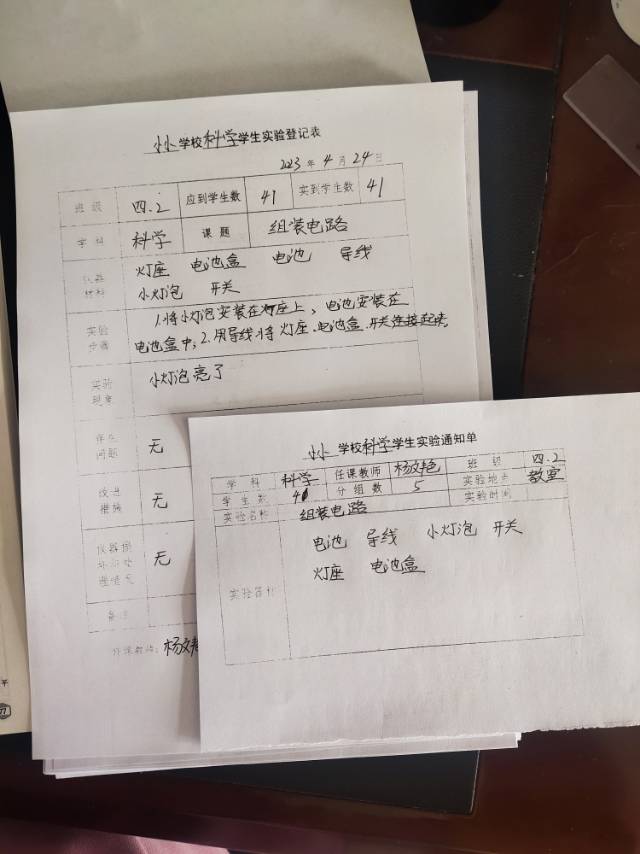 小 学校 科学 学生实验登记表
2023 年 4 月 24 日
班级 四.2 应到学生数 41 实到学生数 41
学科 科学 课题 组装电路
仪器 灯座 电池盒 电池 导线
材料 小灯泡 开关
实验 1.将小灯泡安装在灯座上、电池安装在
步骤 电池盒中,2.用导线将灯座.电池盒.开关连接起来,
实验 小灯泡亮了
现象
存在 无
问题
改进 无
措施
仪器损 无
坏
备注
任课教师: 杨文艳
小 学校 科学 学生实验通知单
学科 科学 任课教师 杨文艳 班级 四.2
学生数 41 分组数 5 实验地点 教室
实验名称 组装电路 实验时间
电池 导线 小灯泡 开关
灯座 电池盒
实验器材